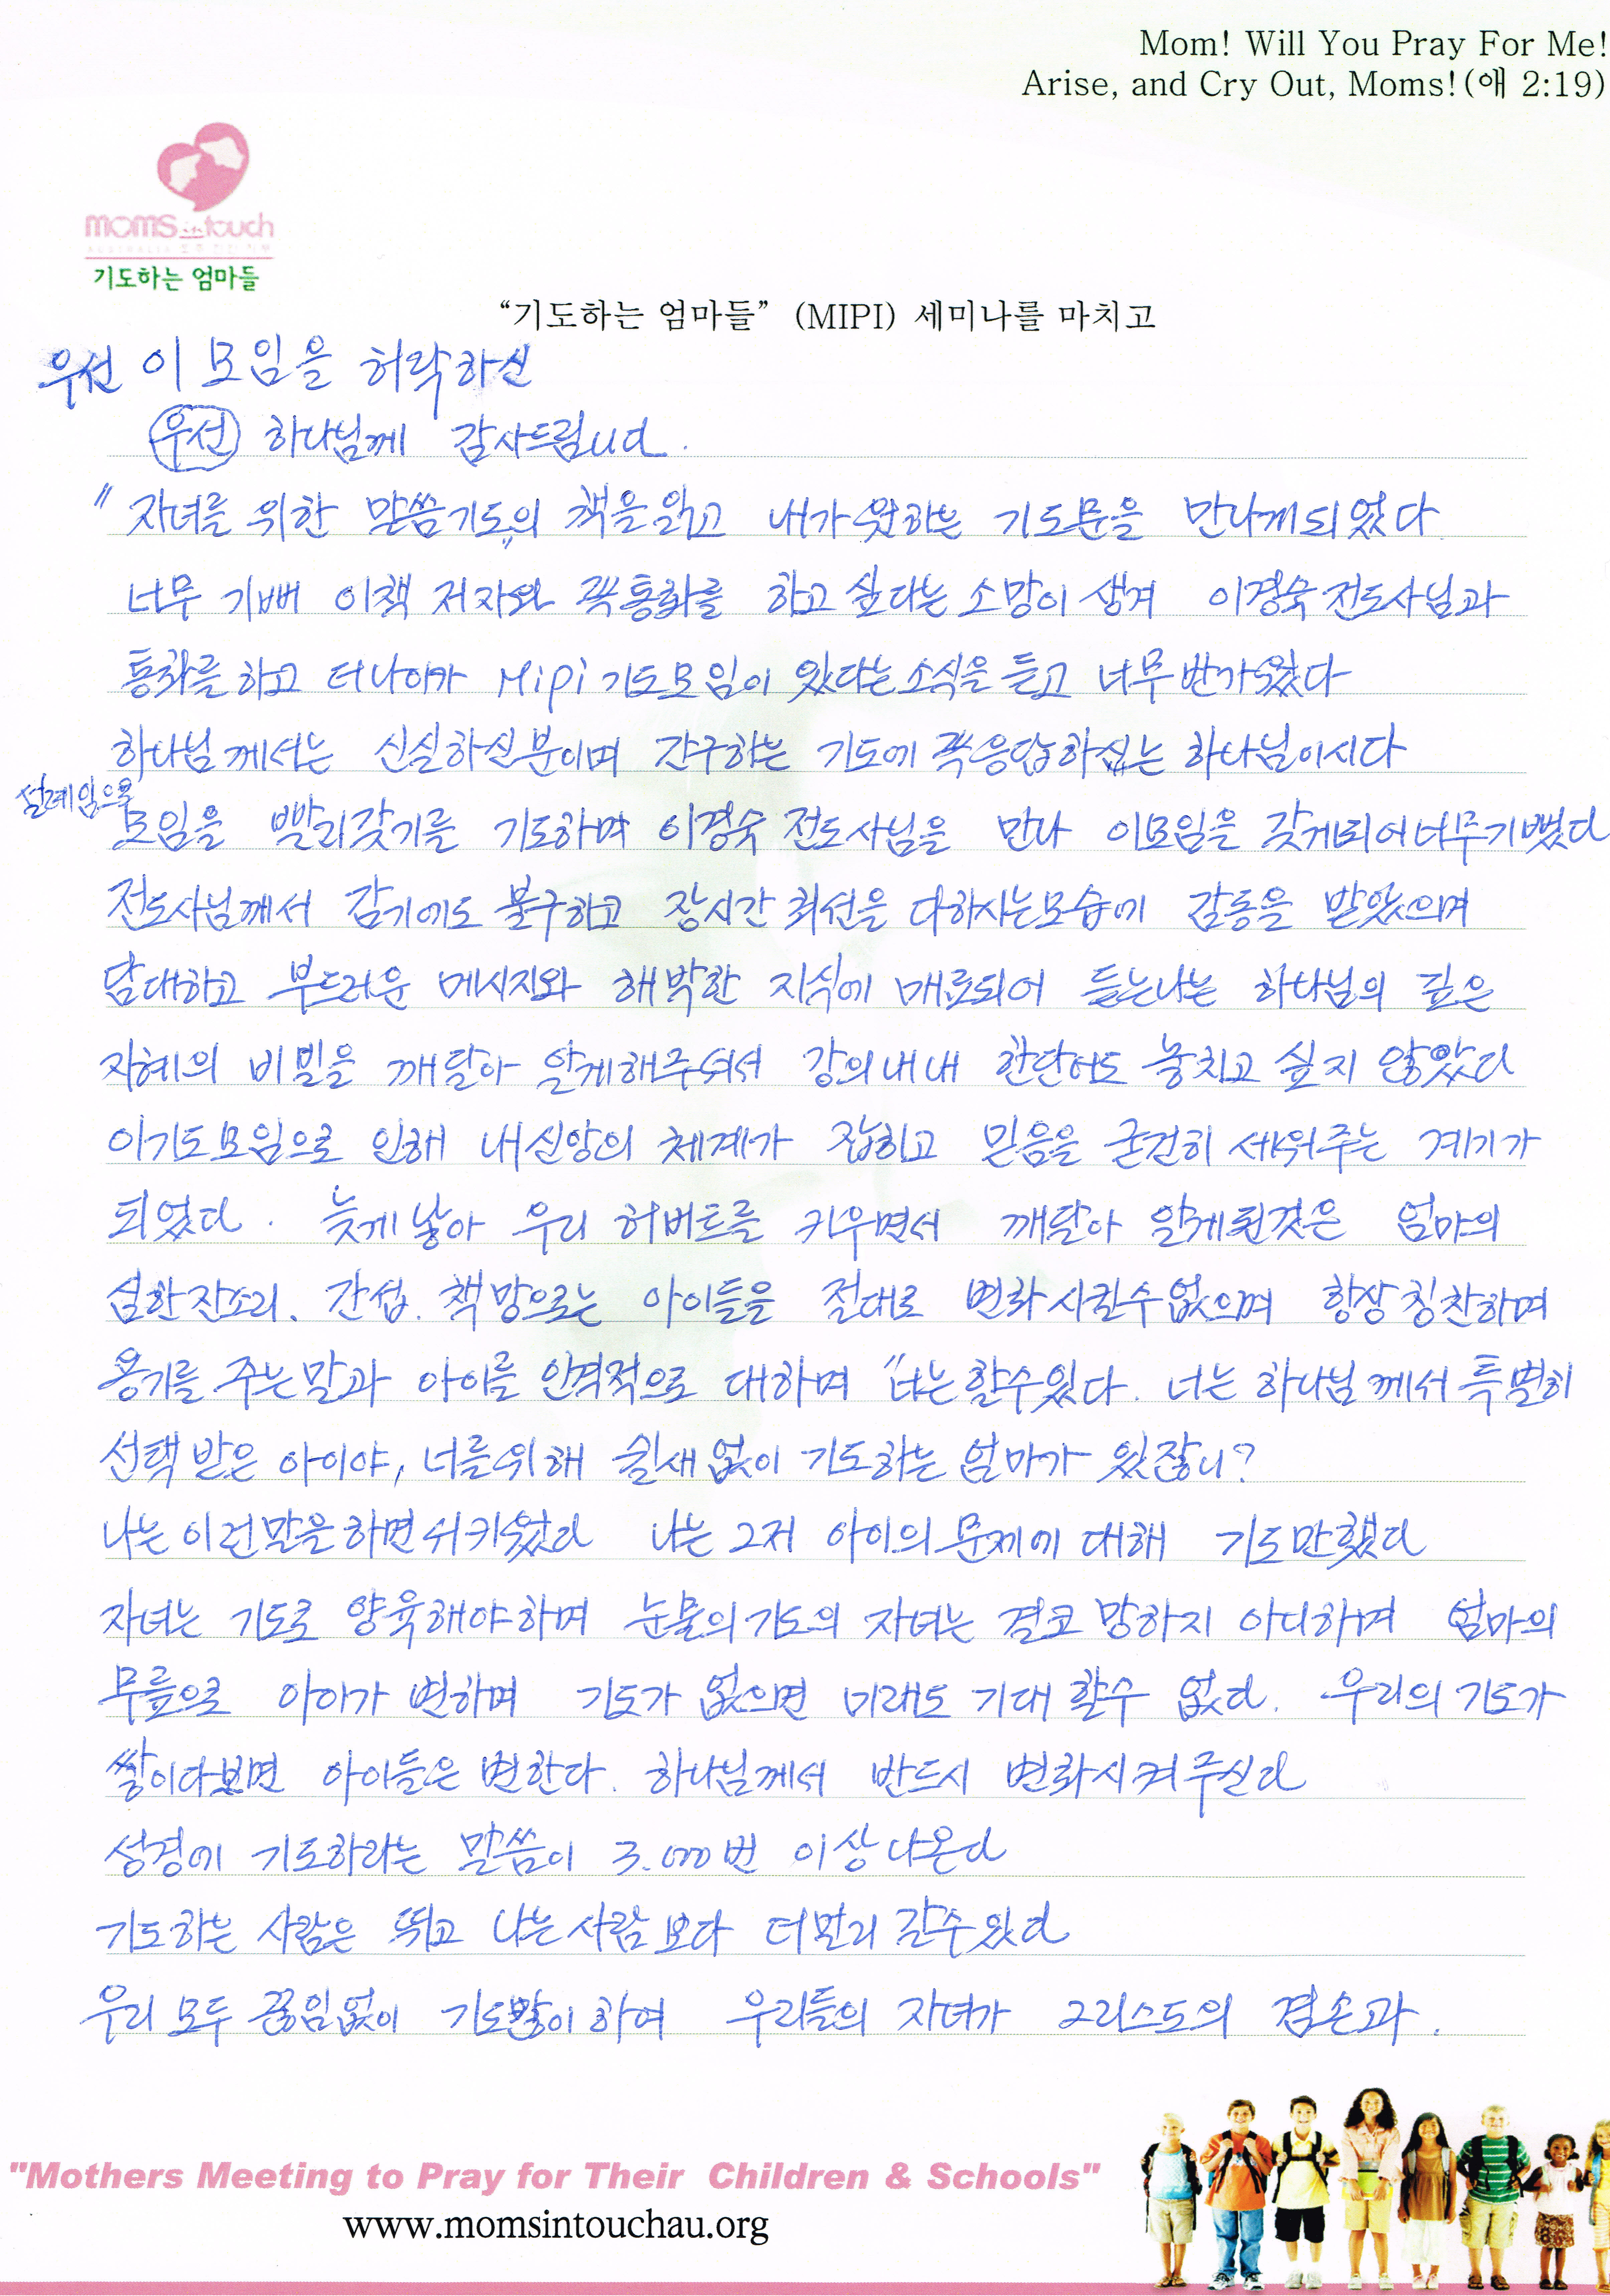 Mom! Will You Pray For Me!
Arise, and Cry Out, Moms!(애 2:19)
moms in touch
기도하는 엄마들
“기도하는 엄마들” (MIPI) 세미나를 마치고
우선 이 모임을 허락하신
우선 하나님께 감사드립니다.
"자녀를 위한 말씀기도"의 책을 읽고 내가 원하는 기도문을 만나게되었다
너무 기뻐 이책 저자와 꼭통화를 하고 싶다는 소망이 생겨 이경숙 전도사님과
통화를 하고 더나아가 Mipi 기도모임이 있다는소식을 듣고 너무반가웠다
하나님께서는 신실하신분이며 간구하는 기도에 꼭응답하시는 하나님이시다
설레임으로
모임을 빨리갖기를 기도하며 이경숙 전도사님을 만나 이모임을 갖게되어너무기뻤다
전도사님께서 감기에도 불구하고 장시간 최선을 다하시는모습에 감동을 받았으며
담대하고 부드러운 메시지와 해박한 지식에 매료되어 듣는나는 하나님의 깊은
지혜의 비밀을 깨달아 알게해주셔서 강의내내 한단어도 놓치고 싶지 않았다
이기도모임으로 인해 내신앙의 체계가 잡히고 믿음을 굳건히 세워주는 계기가
되었다. 늦게 낳아 우리 허버트를 키우면서 깨달아 알게된것은 엄마의
심한잔소리. 간섭. 책망으로는 아이들을 절대로 변화시킬수없으며 항상칭찬하며
용기를 주는말과 아이를 인격적으로 대하며 "너는할수있다. 너는 하나님께서 특별히
선택받은 아이야, 너를위해 쉴새없이 기도하는 엄마가 있잖니?
나는 이런말을하면서 키웠다 나는 그저 아이의 문제에 대해 기도만했다
자녀는 기도로 양육해야하며 눈물의기도의 자녀는 결코 망하지 아니하며 엄마의
무릎으로 아이가 변하며 기도가 없으면 미래도 기대 할수 없다. 우리의 기도가
쌓이다보면 아이들은 변한다. 하나님께서 반드시 변화시켜주신다
성경에 기도하라는 말씀이 3.000번 이상나온다
기도하는 사람은 뛰고 나는사람보다 더멀리 갈수있다
우리 모두 끊임없이 기도많이하여 우리들의 자녀가 그리스도의 겸손과.
"Mothers Meeting to Pray for Their Children & Schools"
www.momsintouchau.org